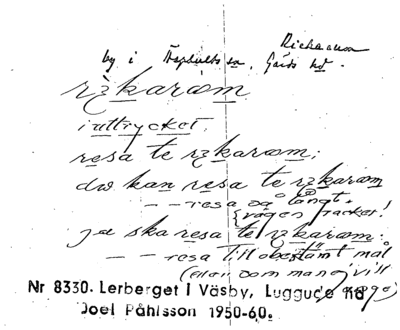 Rickarum
by i Äsphults sn, Gärds hd.
rɪkarəm
i uttrycket,
resa te rɪkarəm;
du kan resa te rɪkarəm
-- resa så långt
{vägen räcker!
ja ska resa te rɪkarəm:
-- resa till obestämt mål
(eller som man ej vill
Nr 8330. Lerberget i Väsby, Luggude hd
Joel Påhlsson 1950-60.